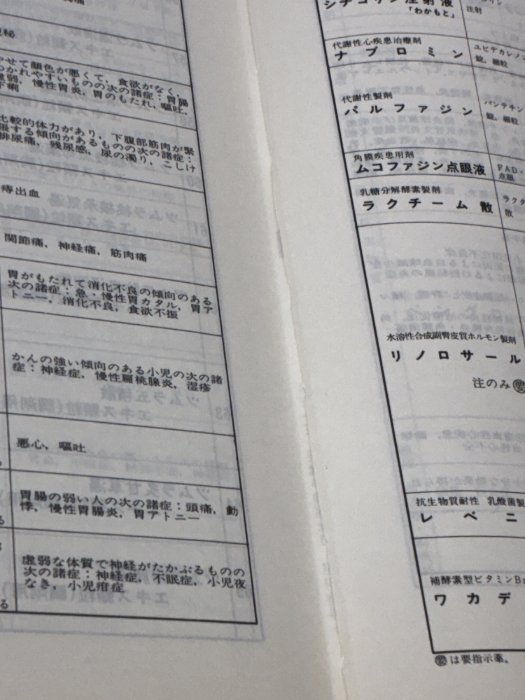 せて顔色が悪くて、食欲がなく、
つかれやすいものの次の諸症：胃腸
虚弱，慢性胃炎，胃のもたれ，嘔吐，
下痢
比較的体力があり，下腹部筋肉が緊
張する傾向があるものの次の諸症：
排尿痛，残尿感，尿の濁り，こしけ
痔出血
関節痛，神経痛，筋肉痛
胃がもたれて消化不良の傾向のある
次の諸症：急・慢性胃カタル，胃ア
トニー，消化不良，食欲不振
かんの強い傾向のある小児の次の諸
症：神経症，慢性扁桃腺炎，湿疹
悪心，嘔吐
胃腸の弱い人の次の諸症：頭痛，動
悸，慢性胃腸炎，胃アトニー
虚弱な体質で神経がたかぶるものの
次の諸症：神経症，不眠症，小児夜
なき，小児疳症
シチコリン注射液
「わかもと」
注射
代謝性心疾患治療剤
ナプロミン
ユビデカレノ
錠，顆粒
代謝性製剤
パルファジン
パンテチン
錠，細粒
角膜疾患用剤
ムコファジン点眼液
FAD・
点眼
乳糖分解酵素製剤
ラクチーム散
ラクタ
散
水溶性合成副腎皮質ホルモン製剤
リノロサール
注のみ㊩
抗生物質耐性 乳酸菌製
レベニ
補酵素型ビタミンB
ワカデ
は要指示薬。